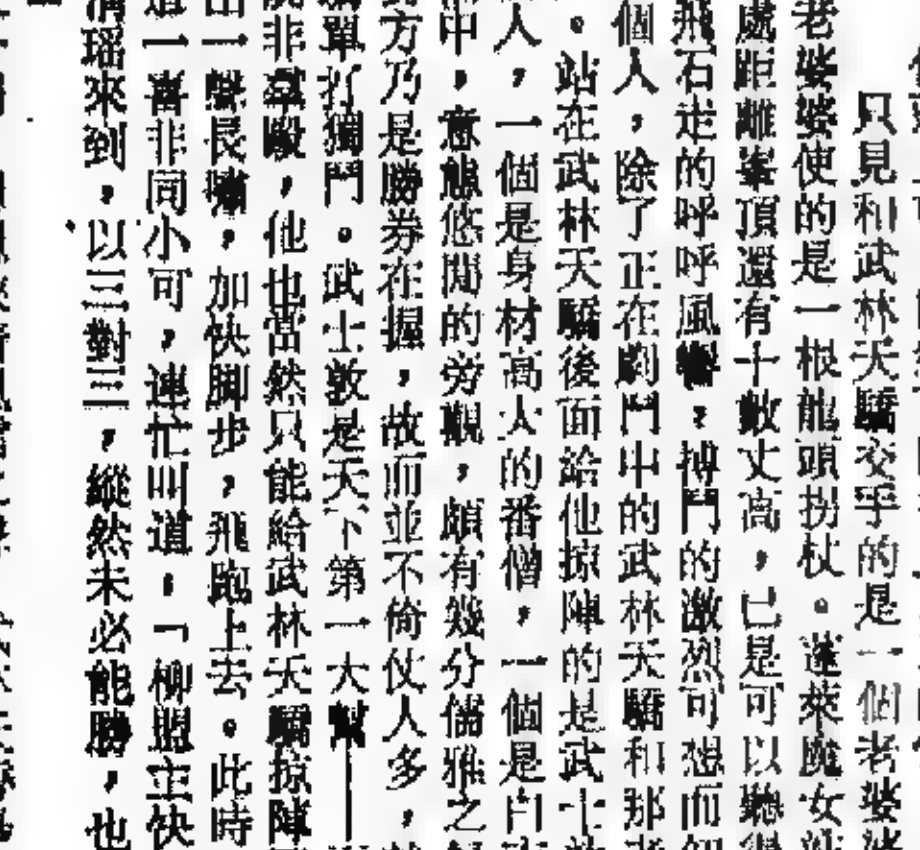 只見和武林天驕交手的是一個老婆婆
老婆婆使的是一根龍頭拐杖。蓬萊魔女
處距離峯頂還有十數丈高，已是可以聽得
飛石走的呼呼風響，搏鬥的激烈可想而知
個人，除了正在劇鬥中的武林天驕和那老
。站在武林天驕後面給他掠陣的是武士敦
人，一個是身材高大的番僧，一個是白
中，意態悠閒的旁觀，頗有幾分儒雅之
方乃是勝券在握，故而並不倚仗人多，
單打獨鬥。武士敦是天下第一大幫——
非羣毆，他也當然只能給武林天驕掠陣
出一聲長嘯，加快脚步，飛跑上去。此時
這一喜非同小可，連忙叫道：「柳盟主快
清瑤來到，以三對三，縱然未必能勝，也